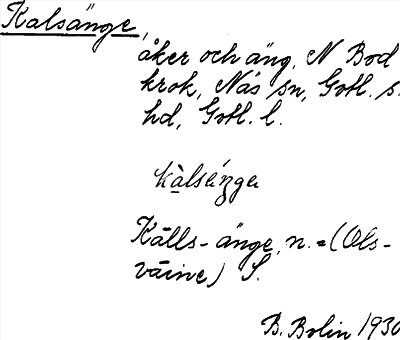 Kalsänge,
åker och äng, N Bod
krok, Näs sn, Gotl. s.
hd, Gotl. l.
kàlséngɐ
Källs-änge, n. = (Ols-
väine) S.
B. Bolin 1930